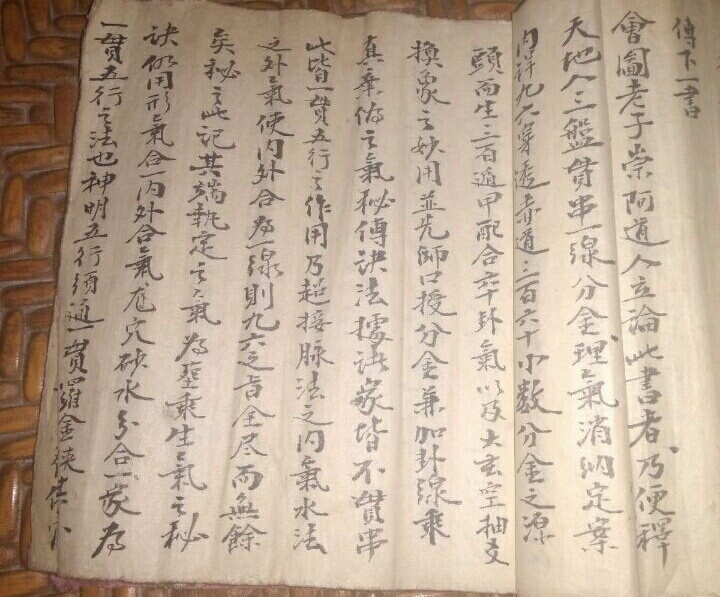 傳下一書
會圖老子崇阿道人立論此書者乃便釋
天地人三盤貫串一線分金理氣消納定案
內詳九六穿透赤道三百六十小數分金之源
頭而生三百遁甲配合六十卦氣以及大玄空抽爻
換象之妙用並先師口授分金兼加卦線乘
真棄偽之氣秘傳訣法據諸家皆不貫串
此皆一貫五行之作用乃超接脉法之內氣水法
之外氣使內外合為一線則九六之旨全尽而無餘
矣秘之此記其端執定之氣為聖乘生氣之秘
訣仍用形氣合一內外合氣龍穴砂水分合一家為
一貫五行之法也神明五行須通一貫羅金